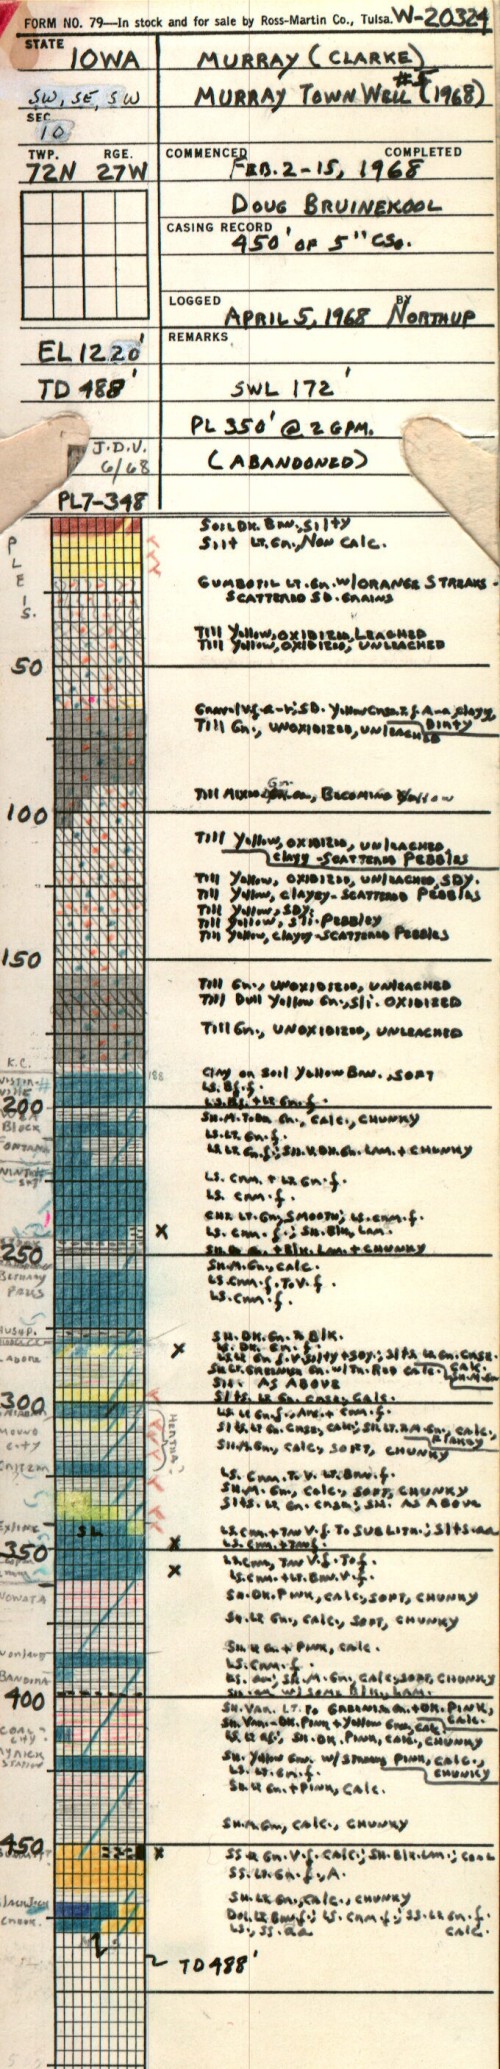 FORM NO. 79—In stock and for sale by Ross-Martin Co., Tulsa. W-20324
STATE IOWA
MURRAY (CLARKE)
SW, SE, SW
MURRAY TOWN WELL #5 (1968)
SEC. 10
TWP. RGE.
72N 27W
COMMENCED COMPLETED
FEB. 2-15, 1968
DOUG BRUINEKOOL
CASING RECORD
450' OF 5" CSG.
LOGGED BY
APRIL 5, 1968 NORTHUP
EL 1220'
REMARKS
TD 488'
SWL 172'
PL 350' @ 2 GPM.
J.D.V.
6/68
(ABANDONED)
PL7-348
PLEIS.
SOIL DK. BRN., SILTY
SILT LT. GN., NON CALC.
GUMBOTIL LT. GN. W/ORANGE STREAKS-
SCATTERED SD. GRAINS
TILL YELLOW, OXIDIZED, LEACHED
TILL YELLOW, OXIDIZED, UNLEACHED
50
DIRTY
TILL GN., UNOXIDIZED, UNLEACHED
TILL MIXED BECOMING YELLOW
100
TILL YELLOW, OXIDIZED, UNLEACHED
CLAYY-SCATTERED PEBBLES
TILL YELLOW, OXIDIZED, UNLEACHED, SDY.
TILL YELLOW, CLAYEY-SCATTERED PEBBLES
TILL YELLOW, SDY.
TILL YELLOW, SLI. PEBBLEY
TILL YELLOW, CLAYEY-SCATTERED PEBBLES
150
TILL GN., UNOXIDIZED, UNLEACHED
TILL DULL YELLOW GN., SLI. OXIDIZED
TILL GN., UNOXIDIZED, UNLEACHED
K.C.
188
CLAY OR SOIL YELLOW BRN., SOFT
LS. BF. F.
200
BLOCK
SH. M. TO DK. GN., CALC., CHUNKY
LS. LT. GN. F.
FONTANA
LS. LT. GN. F.; SH. V. DK. GN. LAM. + CHUNKY
LS. CRM. + LT. GN. F.
LS. CRM. F.
CHT. LT. GN., SMOOTH; LS. CRM. F.
X
LS. CRM. F.; SH. BLK, LAM.
250
SH. DK. GN. + BLK. LAM. + CHUNKY
BETHANY
FALLS
SH. M. GN., CALC.
LS. CRM. F. TO V. F.
LS. CRM. F.
HUSHP.
SH. DK. GN. TO BLK.
X
LS. DK. GN. F.
LADORE
SH. AS ABOVE
300
SLTS. LT. GN. CRSE, CALC.
HERTHA
MOUND
CITY
SH. M. GN., CALC, SOFT, CHUNKY
CRITZER
LS. CRM. TO V. LT. BRN. F.
SH. M. GN., CALC, SOFT, CHUNKY
SLTS. LT. GN. CRSE.; SH. AS ABOVE
EXLINE
SL
LS. CRM. + TAN V. F. TO SUB LITH.; SLTS. AA
X
LS. CRM. + TAN F.
350
LS. CRM, TAN V. F. TO F.
X
LS. CRM. + LT. BRN. V. F.
NOWATA
SH. DK. PINK, CALC, SOFT, CHUNKY
SH. LT. GN., CALC, SOFT, CHUNKY
SH. LT. GN. + PINK, CALC.
LS. CRM. F.
BANDERA
LS. GN; SH. M. GN, CALC, SOFT, CHUNKY
400
SH. GN. W/SOME BLK, LAM.
SH. VAR. LT. TO GREENISH GN. + DK. PINK,
CALC.
SH. VAR.-DK. PINK + YELLOW GN., CALC.
COAL
CITY
LS. LT. BF., SH. DK. PINK, CALC., CHUNKY
MYRICK
STATION
SH. YELLOW GN. W/ STRONG PINK, CALC.,
CHUNKY
LS. LT. GN. F.
SH. LT. GN. + PINK, CALC.
SH. M. GN, CALC, CHUNKY
450
X
SS. LT. GN. V. F. CALC.; SH. BLK. LAM.; COAL
SS. LT. GN. F., A.
SH. LT. GN., CALC., CHUNKY
DOL. LT. BRN. F.; LS. CRM. F.; SS. LT. GN. F.
CALC.
LS., SS. AA
TD 488'